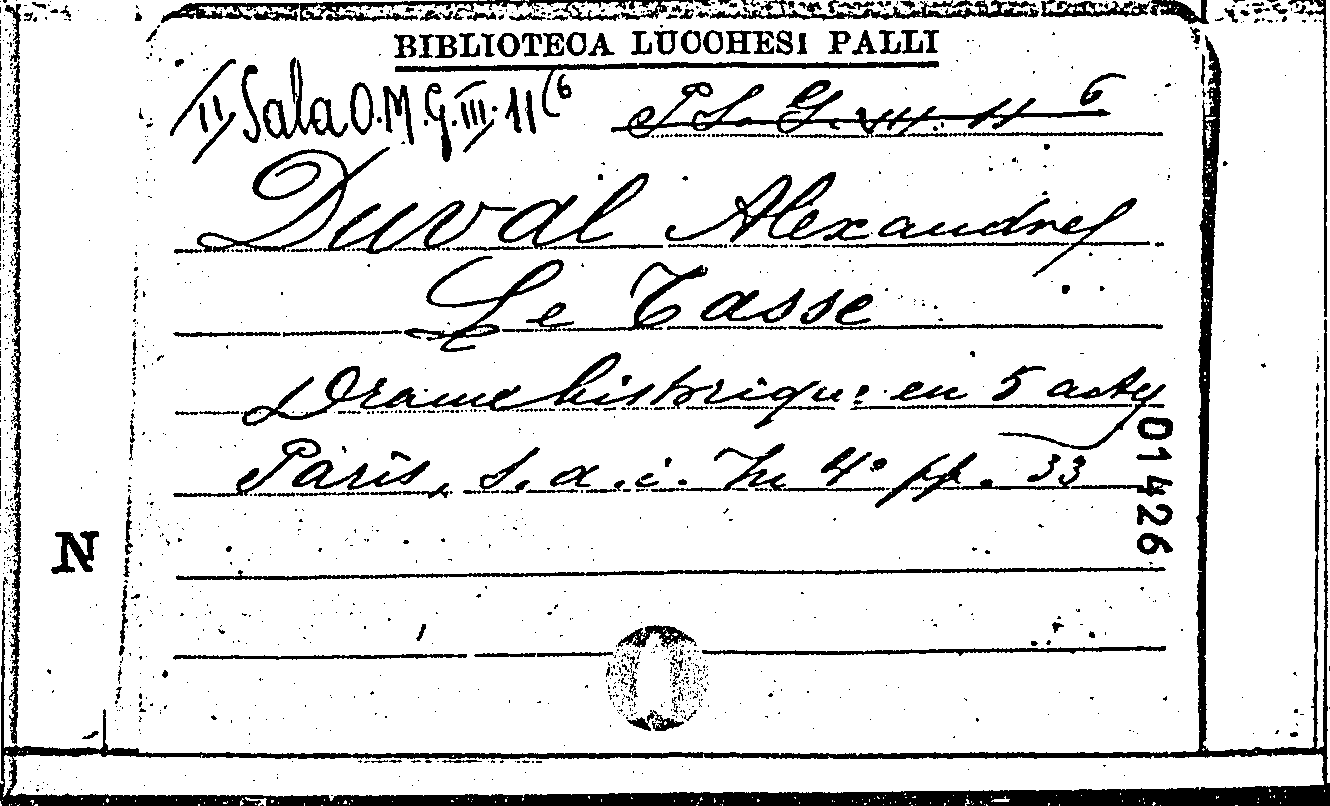 BIBLIOTECA LUCCHESI PALLI
II Sala O.M.G.III.11(6
Duval Alexandre
Le Tasse
Drame historique en 5 actes
Paris, s. d. i. In 4° pp. 33
01426
N